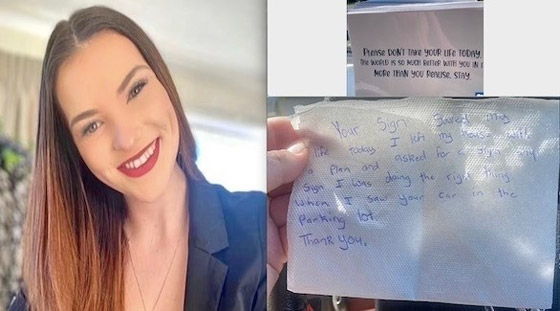 Please DON'T TAKE YOUR LIFE TODAY.
THE WORLD IS SO MUCH BETTER WITH YOU IN
MORE THAN YOU REALISE. STAY.
Your Sign Saved my
life today. I left my house with
a plan and asked for a sign, any
sign I was doing the right thing
When I saw your car in the
parking lot.
Thank you.